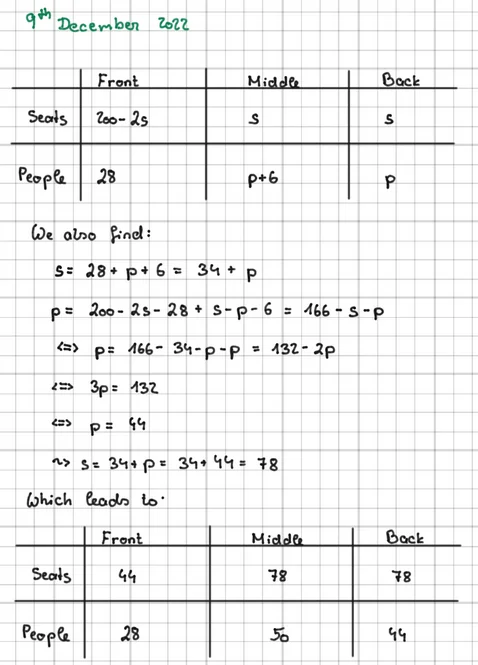 9th December 2022
Front Middle Back
Seats 200-2s s s
People 28 p+6 p
We also find:
s= 28+ p+ 6 = 34 + p
p= 200- 2s- 28 + s-p-6 = 166-s-p
<=> p= 166- 34-p-p = 132-2p
<=> 3p= 132
<=> p= 44
~> s= 34+p= 34+44= 78
Which leads to:
Front Middle Back
Seats 44 78 78
People 28 50 44